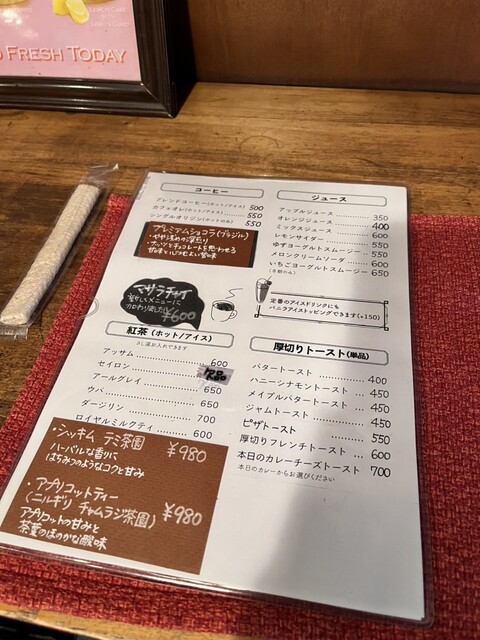 LEMON CAKE
FRESH TODAY
コーヒー
ブレンドコーヒー(ホット/アイス) 500
カフェオレ(ホット/アイス) 550
シングルオリジン(ホットのみ) 550
プレミアムショコラ(ブラジル)
・やや深めの深煎り
・ナッツとチョコレートを思わせる
マサラチャイ
新しくメニューに
加わりました!
¥600
紅茶(ホット/アイス)
さし湯お入れできます
アッサム 600
セイロン 欠品
アールグレイ 650
ウバ 650
ダージリン 700
ロイヤルミルクティ 600
・シッキム テミ茶園 ¥980
ハーバルな香りに
はちみつのようなコクと甘み
・アプリコットティー
(ニルギリ チャムラジ茶園) ¥980
アプリコットの甘みと
茶葉のほのかな酸味
ジュース
アップルジュース 350
オレンジジュース 400
ミックスジュース 600
レモンサイダー 550
ゆずヨーグルトスムージー 550
メロンクリームソーダ 600
いちごヨーグルトスムージー 650
(冬期のみ)
定番のアイスドリンクにも
バニラアイストッピングできます(+150)
厚切りトースト(単品)
バタートースト 400
ハニーシナモントースト 450
メイプルバタートースト 450
ジャムトースト 450
ピザトースト 550
厚切りフレンチトースト 600
本日のカレーチーズトースト 700
本日のカレーからお選びください